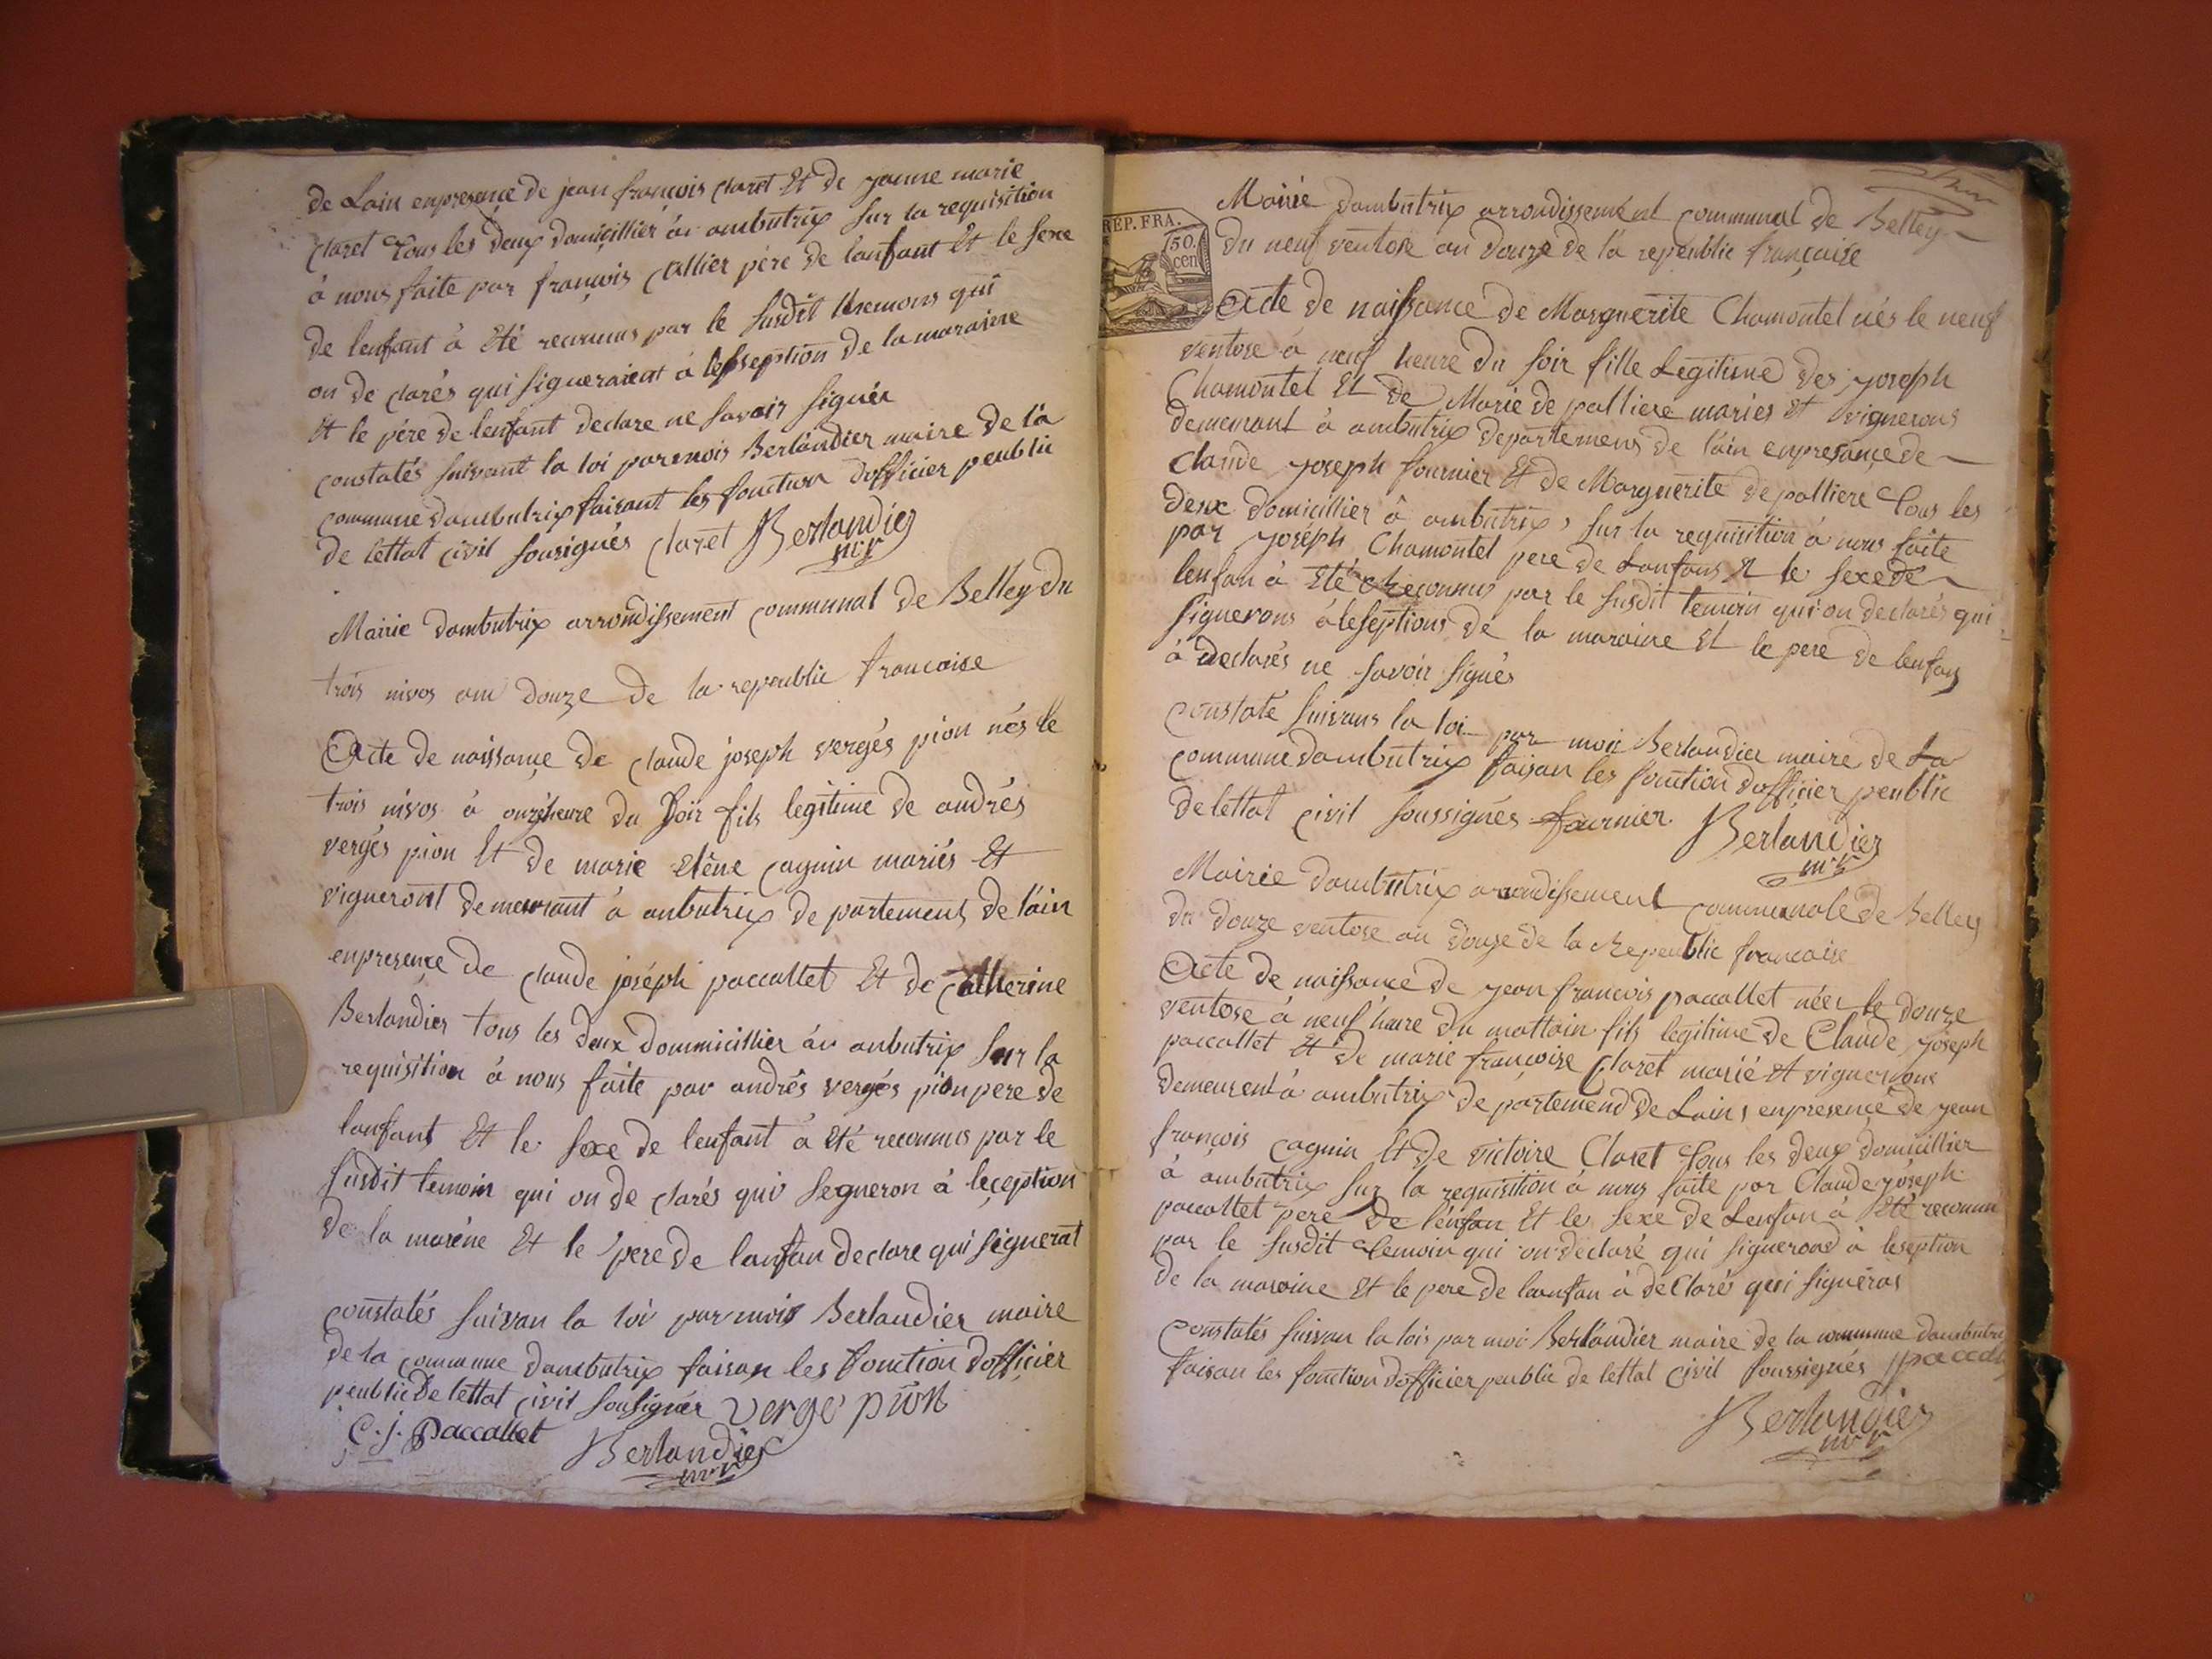 de Lain enpresence de jean françois claret Et de jeanne marie
claret tous les deux domicillier à ambutrix sur la requisition
à nous faite par françois Callier pére de lanfant Et le sexe
de lenfant à Eté reconnus par le susdit themons qui
on de clarés qui signeraient à lesseption de la maraine
Et le pére de lenfant declare ne savoir signér
constatés suivant la loi par mois Berlandier maire de la
commune dambutrix faisant les fonction dofficier peublic
de lettat civil sousignés claret Berlandier
Mairie dambutrix arrondissement communal de Belley du
trois nivos an douze de la repeublic francaise
Acte de naissance de claude joseph vergés pion nés le
trois nivos à onze heure du soir fils legitime de andrés
vergés pion Et de marie elêne cagnin mariés Et
vigneront demeurant à anbutrix de partement de l'ain
enpresence de claude joséph paccallet Et de catherine
Berlandier tous les deux dommicillier à anbutrix sur la
requisition à nous faite par andrés vergés pion pere de
lanfant Et le sexe de lenfant à Eté reconnus par le
susdit temoin qui on de clarés qui segneron à leception
de la maréne Et le pere de lanfan declare qui signerat
constatés suivan la loi par mois Berlandier maire
de la commune dambutrix faisan les fonction dofficier
peublic de lettat civil sousignér vergé pion
C. j. paccallet Berlandier
REP. FRA.
50.
cen
Mairie dambutrix arrondissement communal de Belley
du neuf ventose an douze de la repeublic française
Acte de naissance de Marguerite Chamontel nés le neuf
ventose à neuf heure du soir fille Legitime des joseph
Chamontel Et de Marie de palliere maries Et vignerons
demeurant à ambutrix departemens de l'ain enpresance de
claude joseph fournier Et de Marguerite de palliere tous les
deux domicillier à ambutrix, sur la requisition à nous faite
par joséph Chamontel pere de Lanfans Et le sexe de
lenfan à Eté Reconnus par le susdit temoin qui on declarés qui
signerons à leseptions de la maraine Et le pere de lenfan
à declarés ne savoir signés
constaté suivans la loi par moi Berlandier maire de La
commune dambutrix faisan les fonction dofficier peublic
de lettat civil soussignés fournier. Berlandier
Mairie dambutrix arondissement communale de Belley
du douze ventose an douze de la Repeublic francaise
Acte de naissance de jean francois paccallet néer le douze
ventose à neuf heure du mattain fils legitime de Claude joseph
paccallet Et de marie françoise Claret marié Et vignerons
demeurent à ambutrix de partemend de Lain, enpresence de jean
françois cagnin Et de victoire Claret tous les deux domicillier
à ambutrix sur la requisition à nous faite par Claude joséph
paccallet pere de l'enfan Et le sexe de Lenfan à Eté reconnu
par le susdit temoin qui on declaré qui signerond à leseption
de la maraine Et le pere de lanfan à de Clarés qui signéras
Constatés suivan la lois par moi Berlandier maire de la commune dambutri
faisan les fonction dofficier peublic de lettat civil soussignés paccall
Berlandier